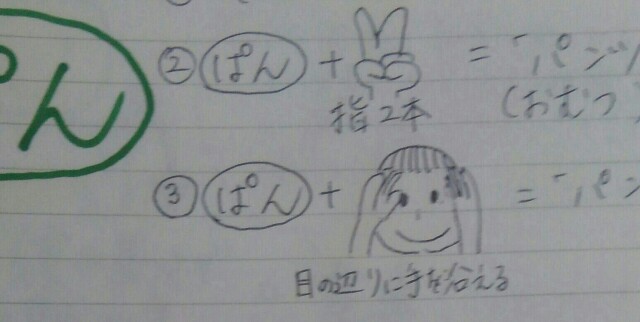 ん
② ぱん + = パンツ
指2本
(おむつ
③ ぱん + = パン
目の辺りに手を沿える